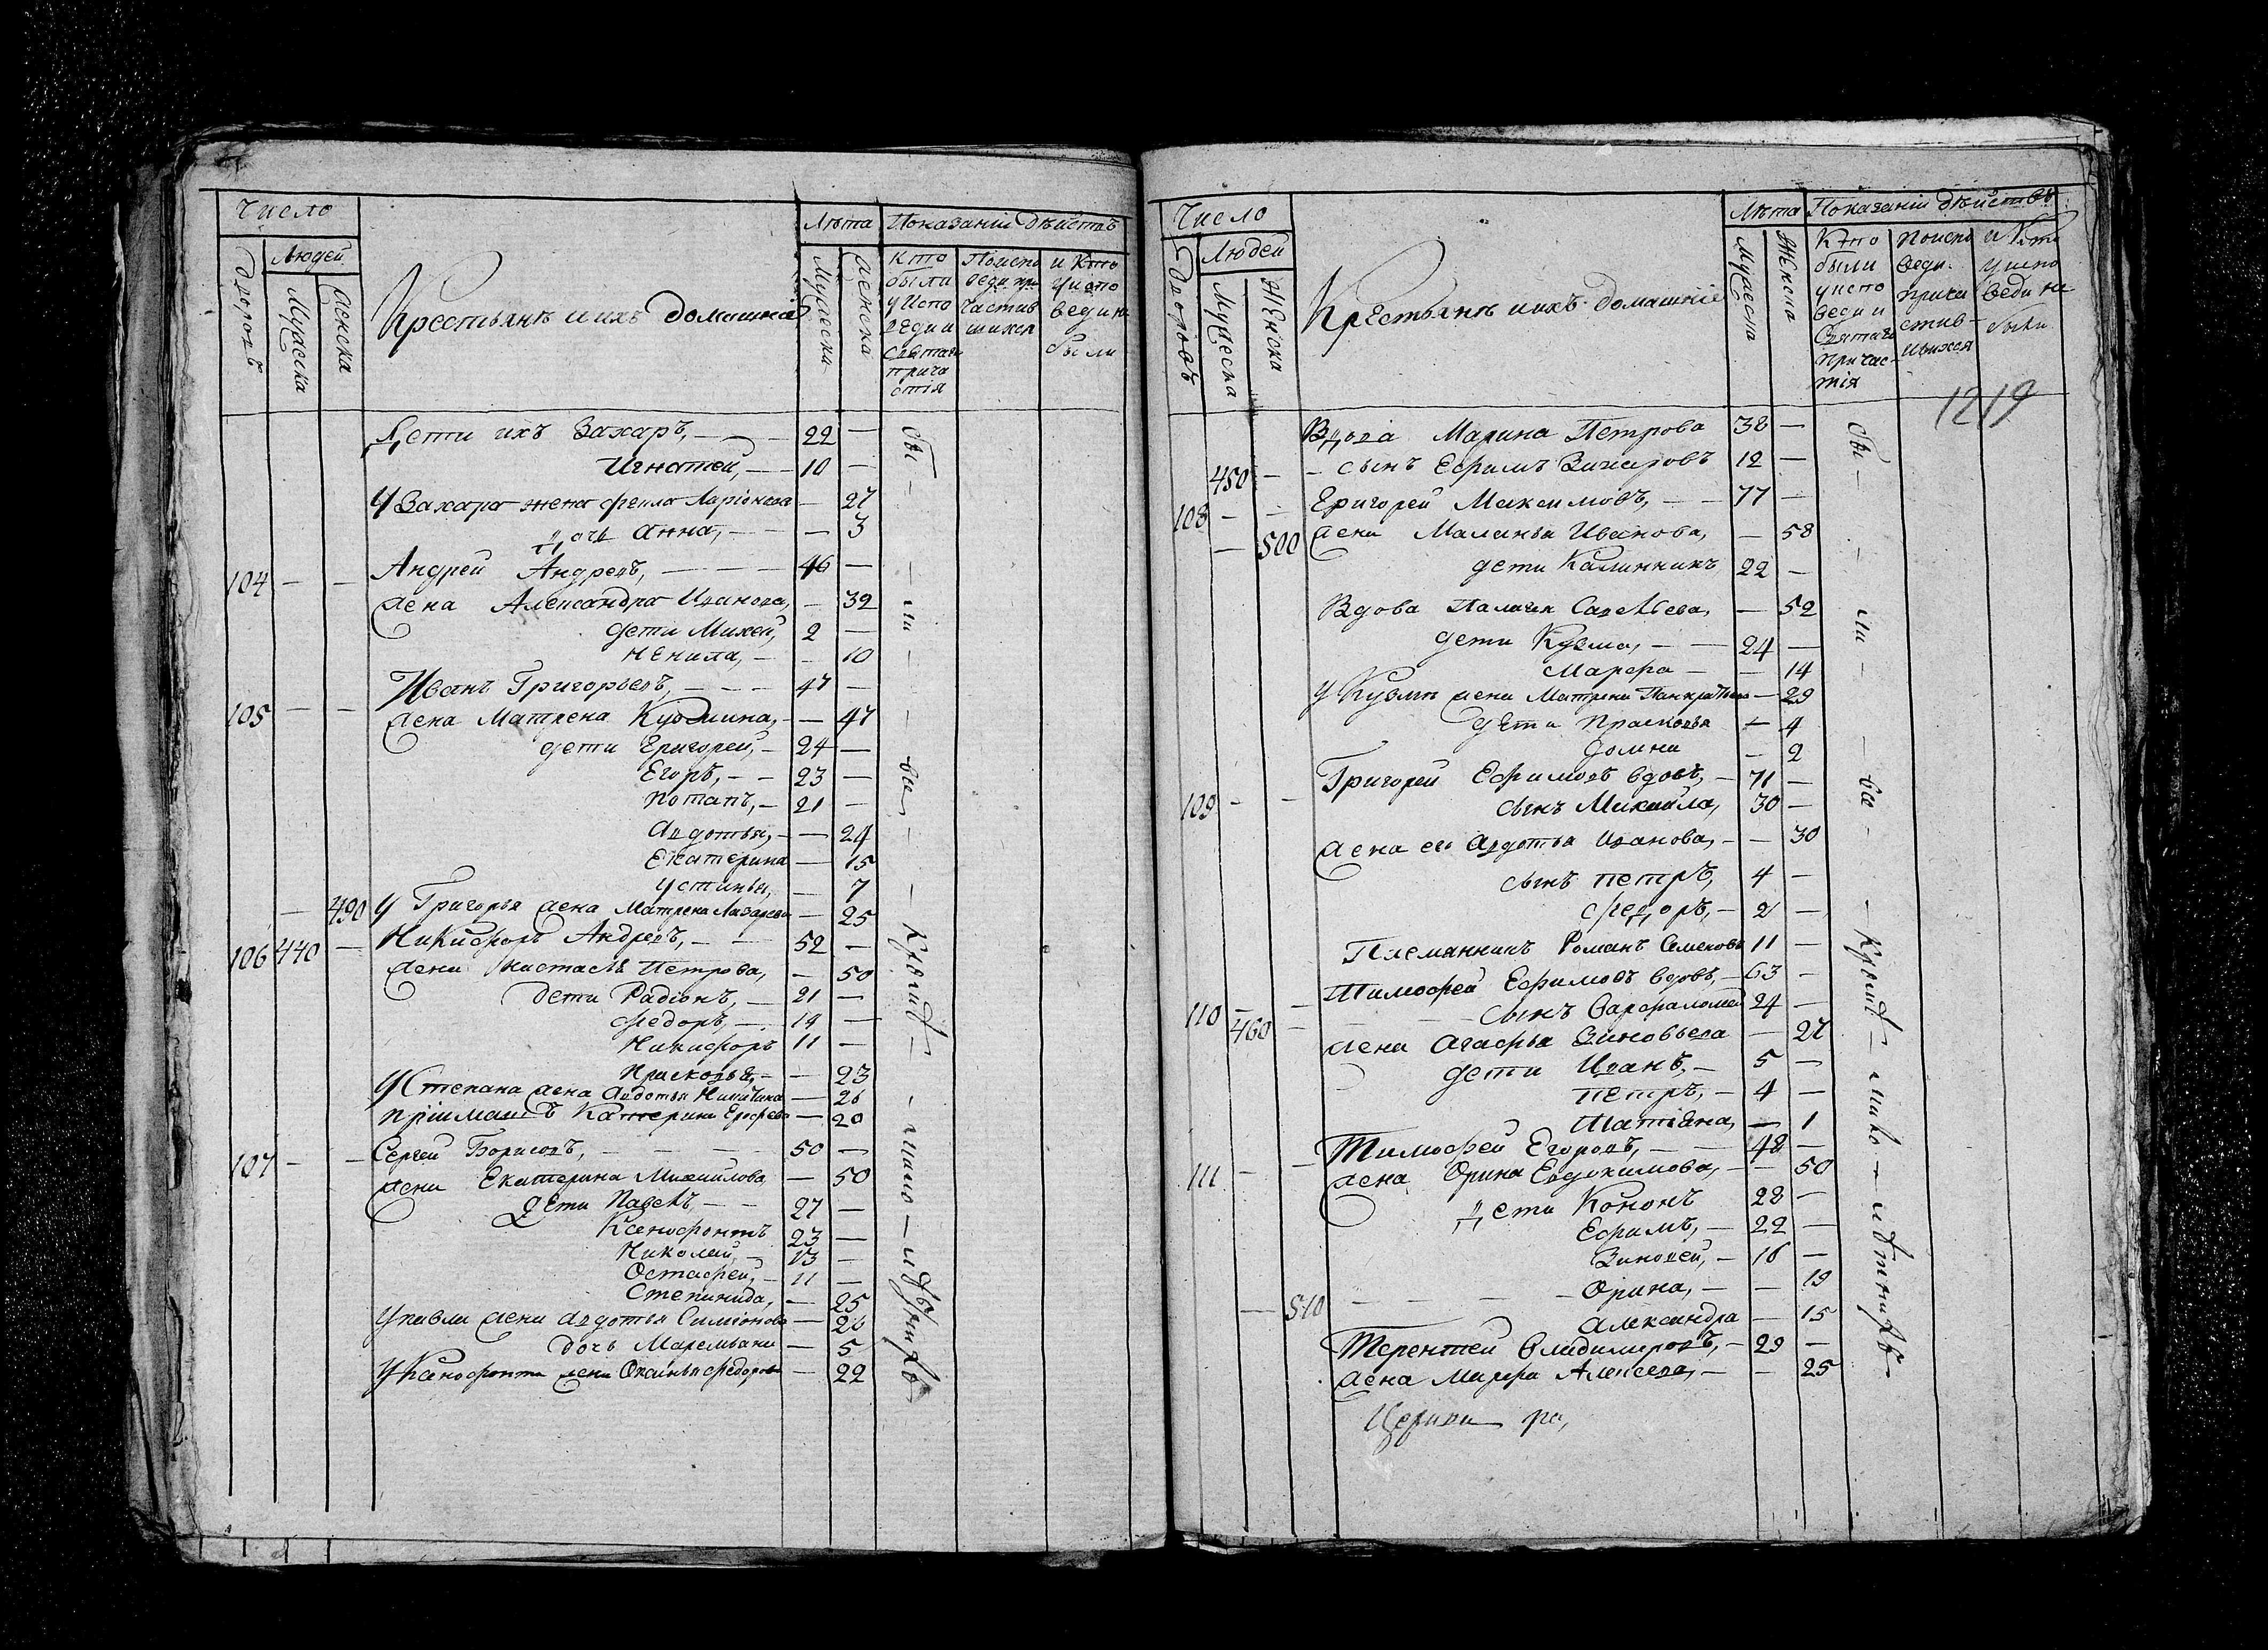 Число
Людей
Дворовъ
Мужеска
Женска
Крестьянѣ и ихъ домашніе
Лѣта
Мужеска
Женска
Показаніи дѣйствъ
Кто были у исповеди и святаго причастія
По исповеди причастившихся
и кто у исповеди не были
Дети ихъ Захаръ, — 22 —
Игнатей, — 10 —
У Захара жена Фекла Ларіонова — 27
Дочь Анна, — — 3
104 — — Андрей Андреевъ, — 46 —
жена Александра Иванова, — 32
дети Михей, 2 —
Ненила, — — 10
105 — — Иванъ Григорьевъ, — 47 —
жена Матрена Кузмина, — — 47
дети Григорей, — 24 —
Егоръ, — 23 —
Потапъ, — 21 —
Авдотья, — — 24
Екатерина — 15
Устинья, — 7
— 490 У Григорья жена Матрена Лазарева — 25
106 440 — Никифоръ Андревъ, — 52 —
жена Настасья Петрова, — 50
дети Радіонъ, — 21 —
Федоръ, — 19 —
Никифоръ 11 —
Прасковья, — — 23
У Степана жена Авдотья Никитина — 26
Катерина — 20
107 — — Сергей Борисовъ, — 50 —
жена Екатерина Михайлова, — 50
дети Павелъ, — 27 —
Ксенофонтъ 23 —
Николай, — 13 —
Остафей, — 11 —
Степанида, — 25
У Павла жена Авдотья Симіонова — 26
дочь Маремьяна — 5
У Ксенофонта жена Оксинья Федорова — 22
бы — ли — все — кроме — мало — летнихъ
Число
Людей
Дворовъ
Мужеска
Женска
Крестьянѣ и ихъ домашніе
Лѣта
Мужеска
Женска
Показаніи дѣйствъ
Кто были у исповеди и Святаго причастія
По исповеди причастившихся
и кто у исповеди не были
1219
Вдова Марина Петрова 38 —
450 — — сынъ Ефимъ Захаровъ 12 —
108 — — Григорей Максимовъ, — 77 —
— 500 жена Маланья Иванова, — 58
дети Калинникъ 22 —
Вдова Палагея Савельева, — 52
дети Кузма, — 24 —
Марфа — — 14
У Кузмы жена Матрена Панкратьева — 29
дети Прасковья — 4
Домна — 2
109 — — Григорей Ефимовъ вдовъ, — 71 —
сынъ Михайла, 30 —
жена его Авдотья Иванова, — — 30
сынъ Петръ, 4 —
Федоръ, — 2 —
Племянникъ Романъ Семеновъ 11 —
110 — — Тимофей Ефимовъ вдовъ, — 63 —
460 — сынъ Варфаломей 24 —
жена Агафья Зиновьева — 27
дети Иванъ, — 5 —
Петръ, — 4 —
Татіяна, — 1
111 — — Тимофей Егоровъ, — 48 —
жена Орина Евдокимова, — — 50
дети Кононъ 28 —
Ефимъ, — 22 —
Зиновей, — 16 —
Орина, — — 19
— 510 Александра — 15
Терентей Владимировъ, — 29 —
жена Марфа Алексеева, — — 25
бы — ли — все — кроме — мало — летнихъ
Церкви